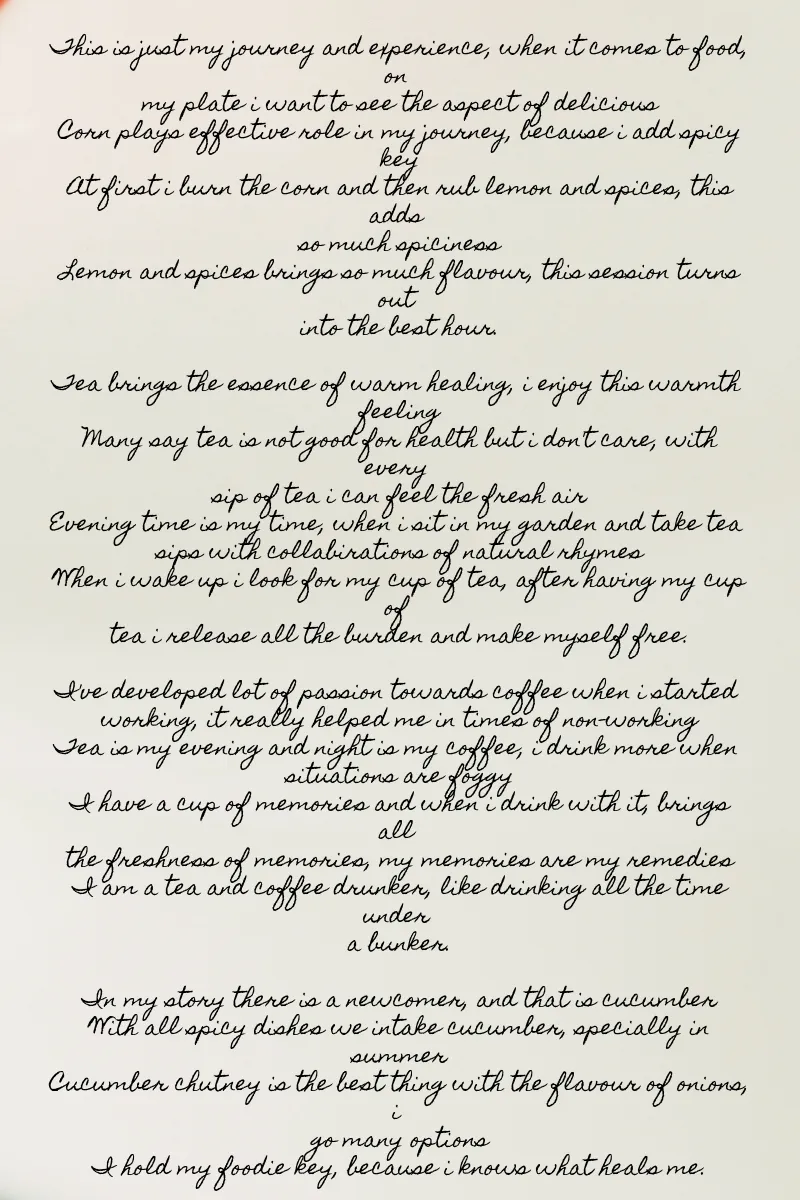 This is just my journey and experience, when it comes to food,
on
my plate i want to see the aspect of delicious
Corn plays effective role in my journey, because i add spicy
key
At first i burn the corn and then rub lemon and spices, this
adds
so much spiciness
Lemon and spices brings so much flavour, this session turns
out
into the best hour.
Tea brings the essence of warm healing, i enjoy this warmth
feeling
Many say tea is not good for health but i don't care, with
every
sip of tea i can feel the fresh air
Evening time is my time, when i sit in my garden and take tea
sips with collabirations of natural rhymes
When i wake up i look for my cup of tea, after having my cup
of
tea i release all the burden and make myself free.
I've developed lot of passion towards coffee when i started
working, it really helped me in times of non-working
Tea is my evening and night is my coffee, i drink more when
situations are foggy
I have a cup of memories and when i drink with it, brings
all
the freshness of memories, my memories are my remedies
I am a tea and coffee drunker, like drinking all the time
under
a bunker.
In my story there is a newcomer, and that is cucumber
With all spicy dishes we intake cucumber, specially in
summer
Cucumber chutney is the best thing with the flavour of onions,
i
go many options
I hold my foodie key, because i knows what heals me.